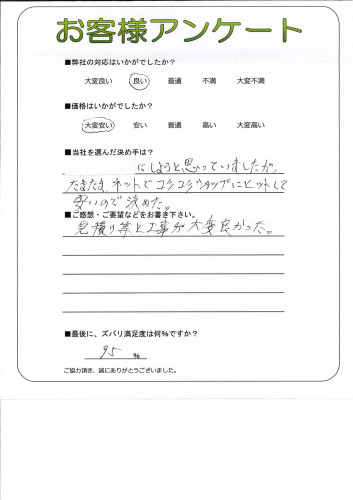 お客様アンケート
■弊社の対応はいかがでしたか？
大変良い 良い 普通 不満 大変不満
■価格はいかがでしたか？
大変安い 安い 普通 高い 大変高い
■当社を選んだ決め手は？
にしようと思っていましたが、
たまたま、ネットでコツコツショップにヒットして
安いので決めた。
■ご感想・ご要望などをお書き下さい。
見積り等と工事が大変良かった。
■最後に、ズバリ満足度は何％ですか？
95 %
ご協力頂き、誠にありがとうございました。